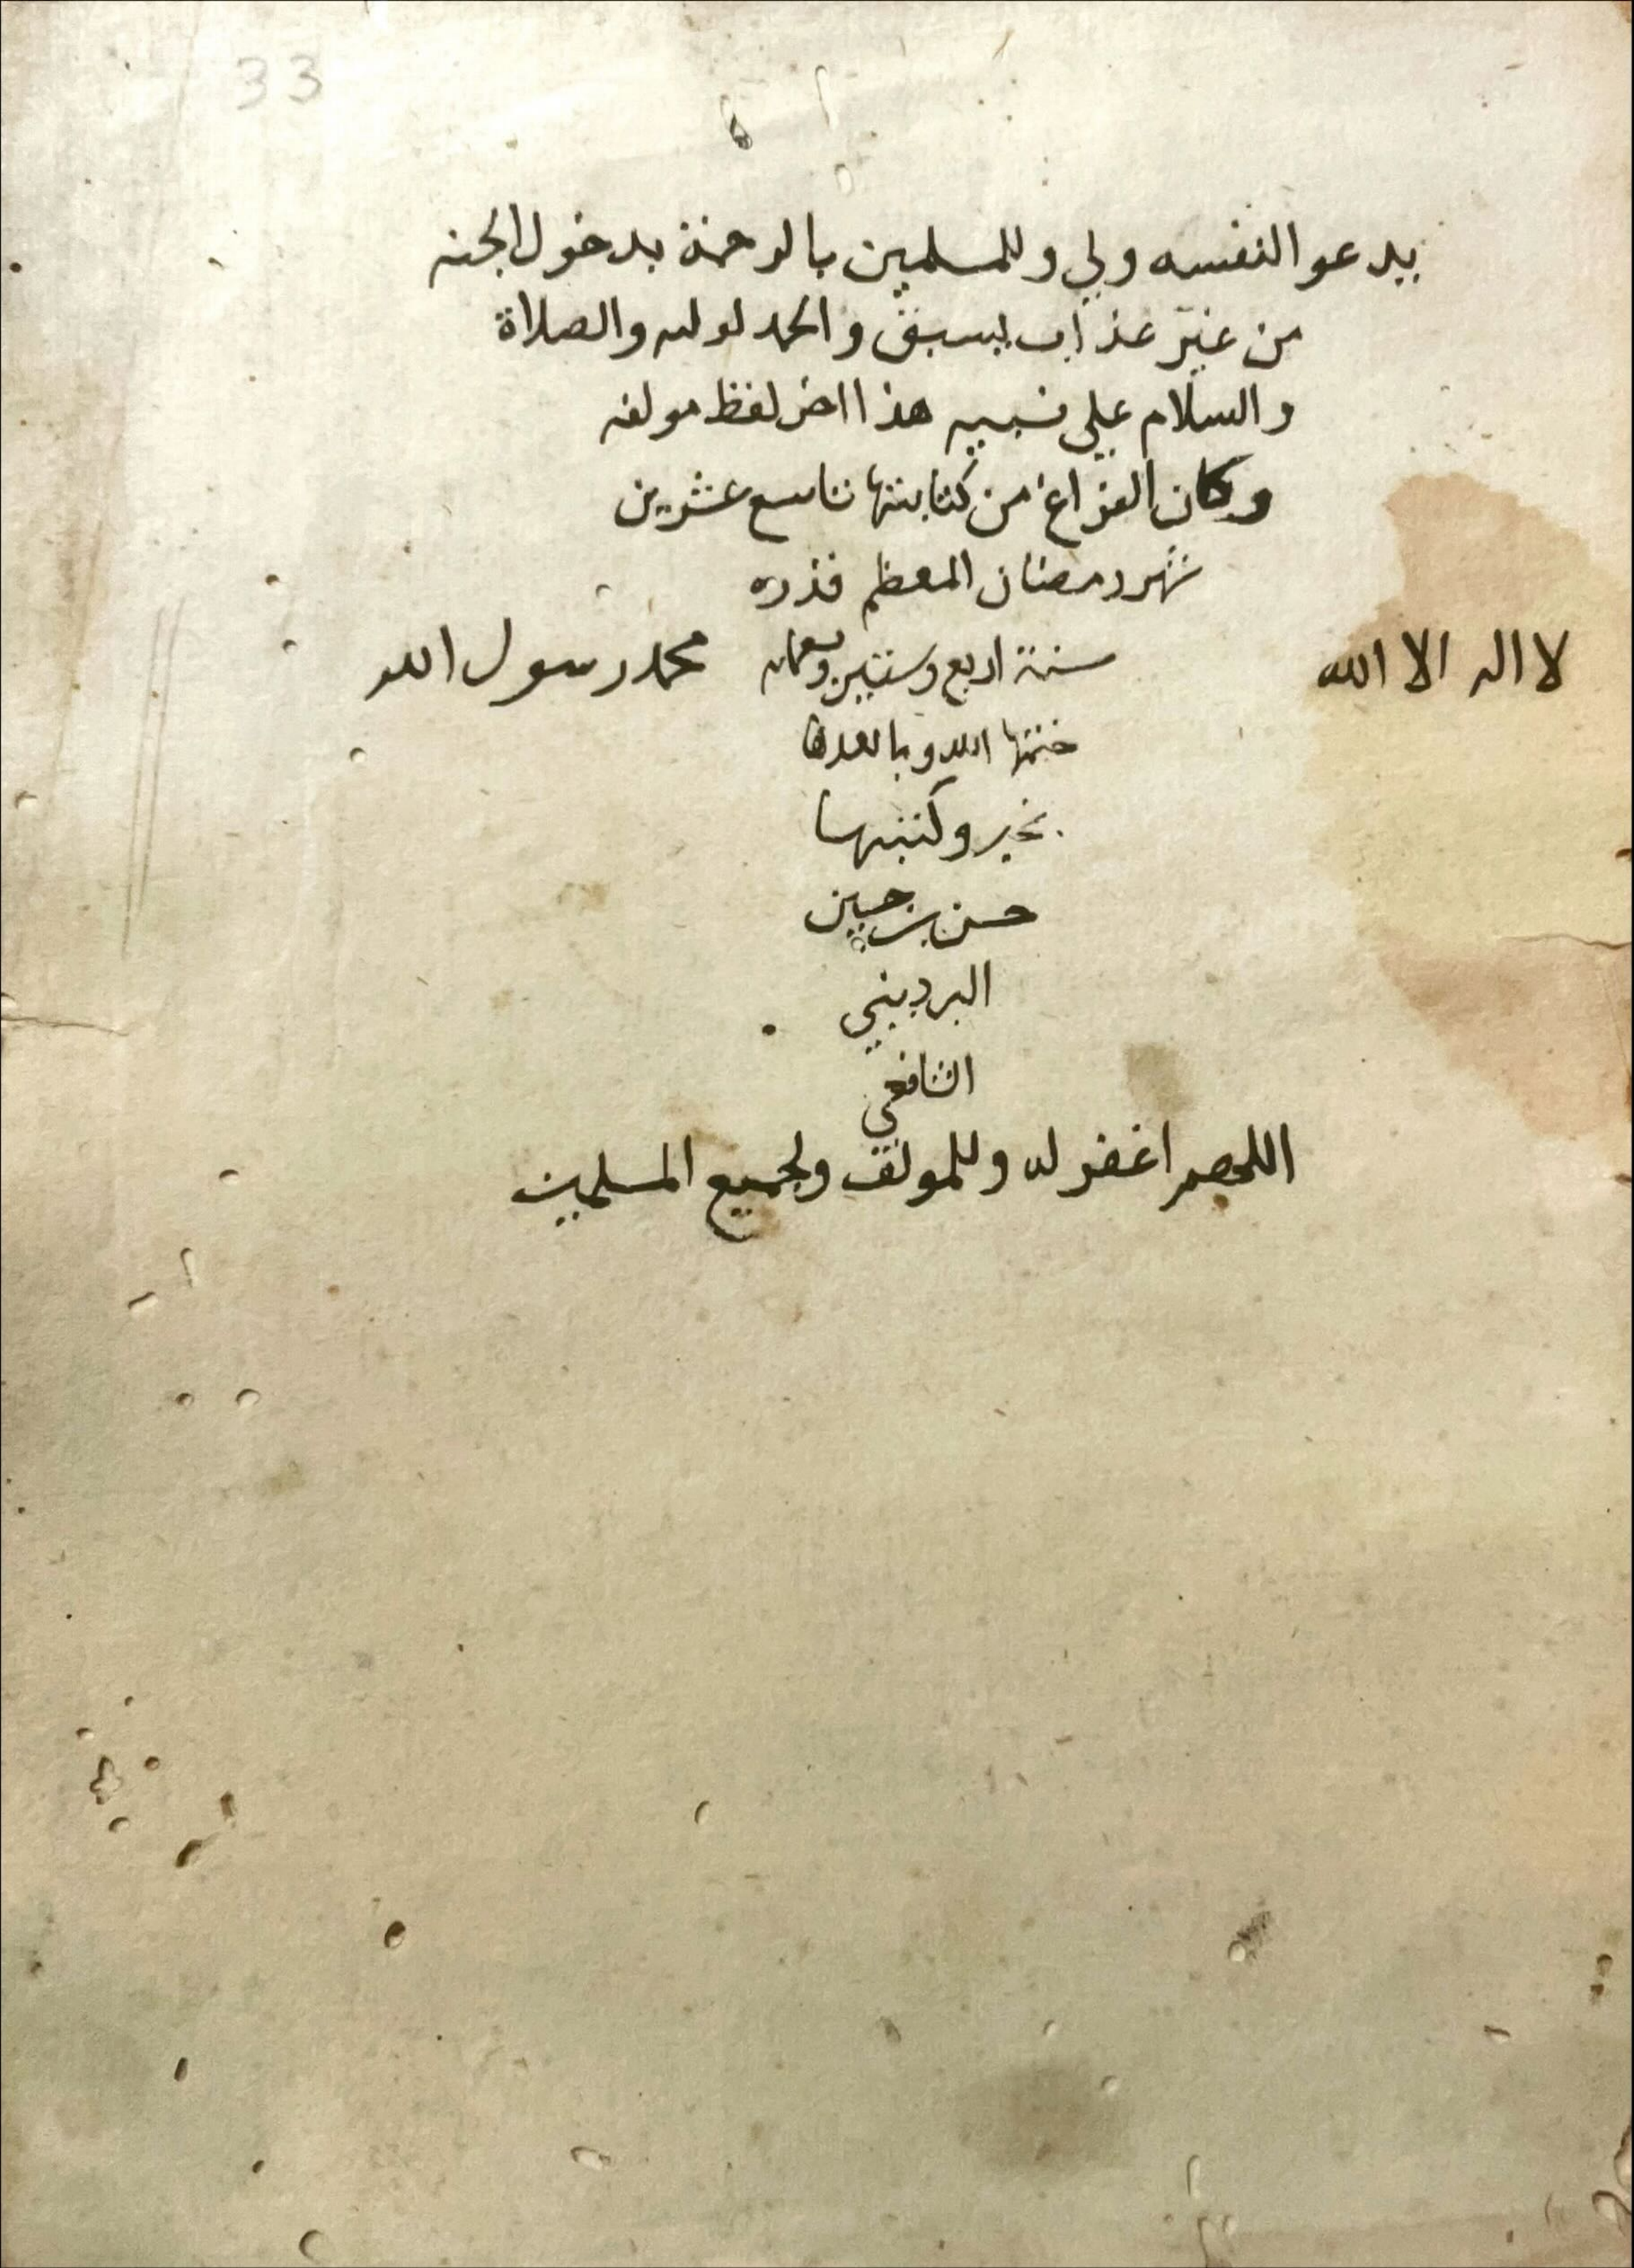 33
يدعو النفسه ولي وللمسلمين بالرحمة بدخول الجنه
من غير عذاب يسبق والحمد لوليه والصلاة
والسلام علي نبيه هذا اخر لفظ مولفه
وكان الفراغ من كتابتها تاسع عشرين
شهر رمضان المعظم قدره
لا اله الا الله سنة اربع وستين محمد رسول الله
ختمها الله
بخير وكتبها
حسن بن حسين
البرديني
الشافعي
اللهم اغفر له وللمولف ولجميع المسلمين